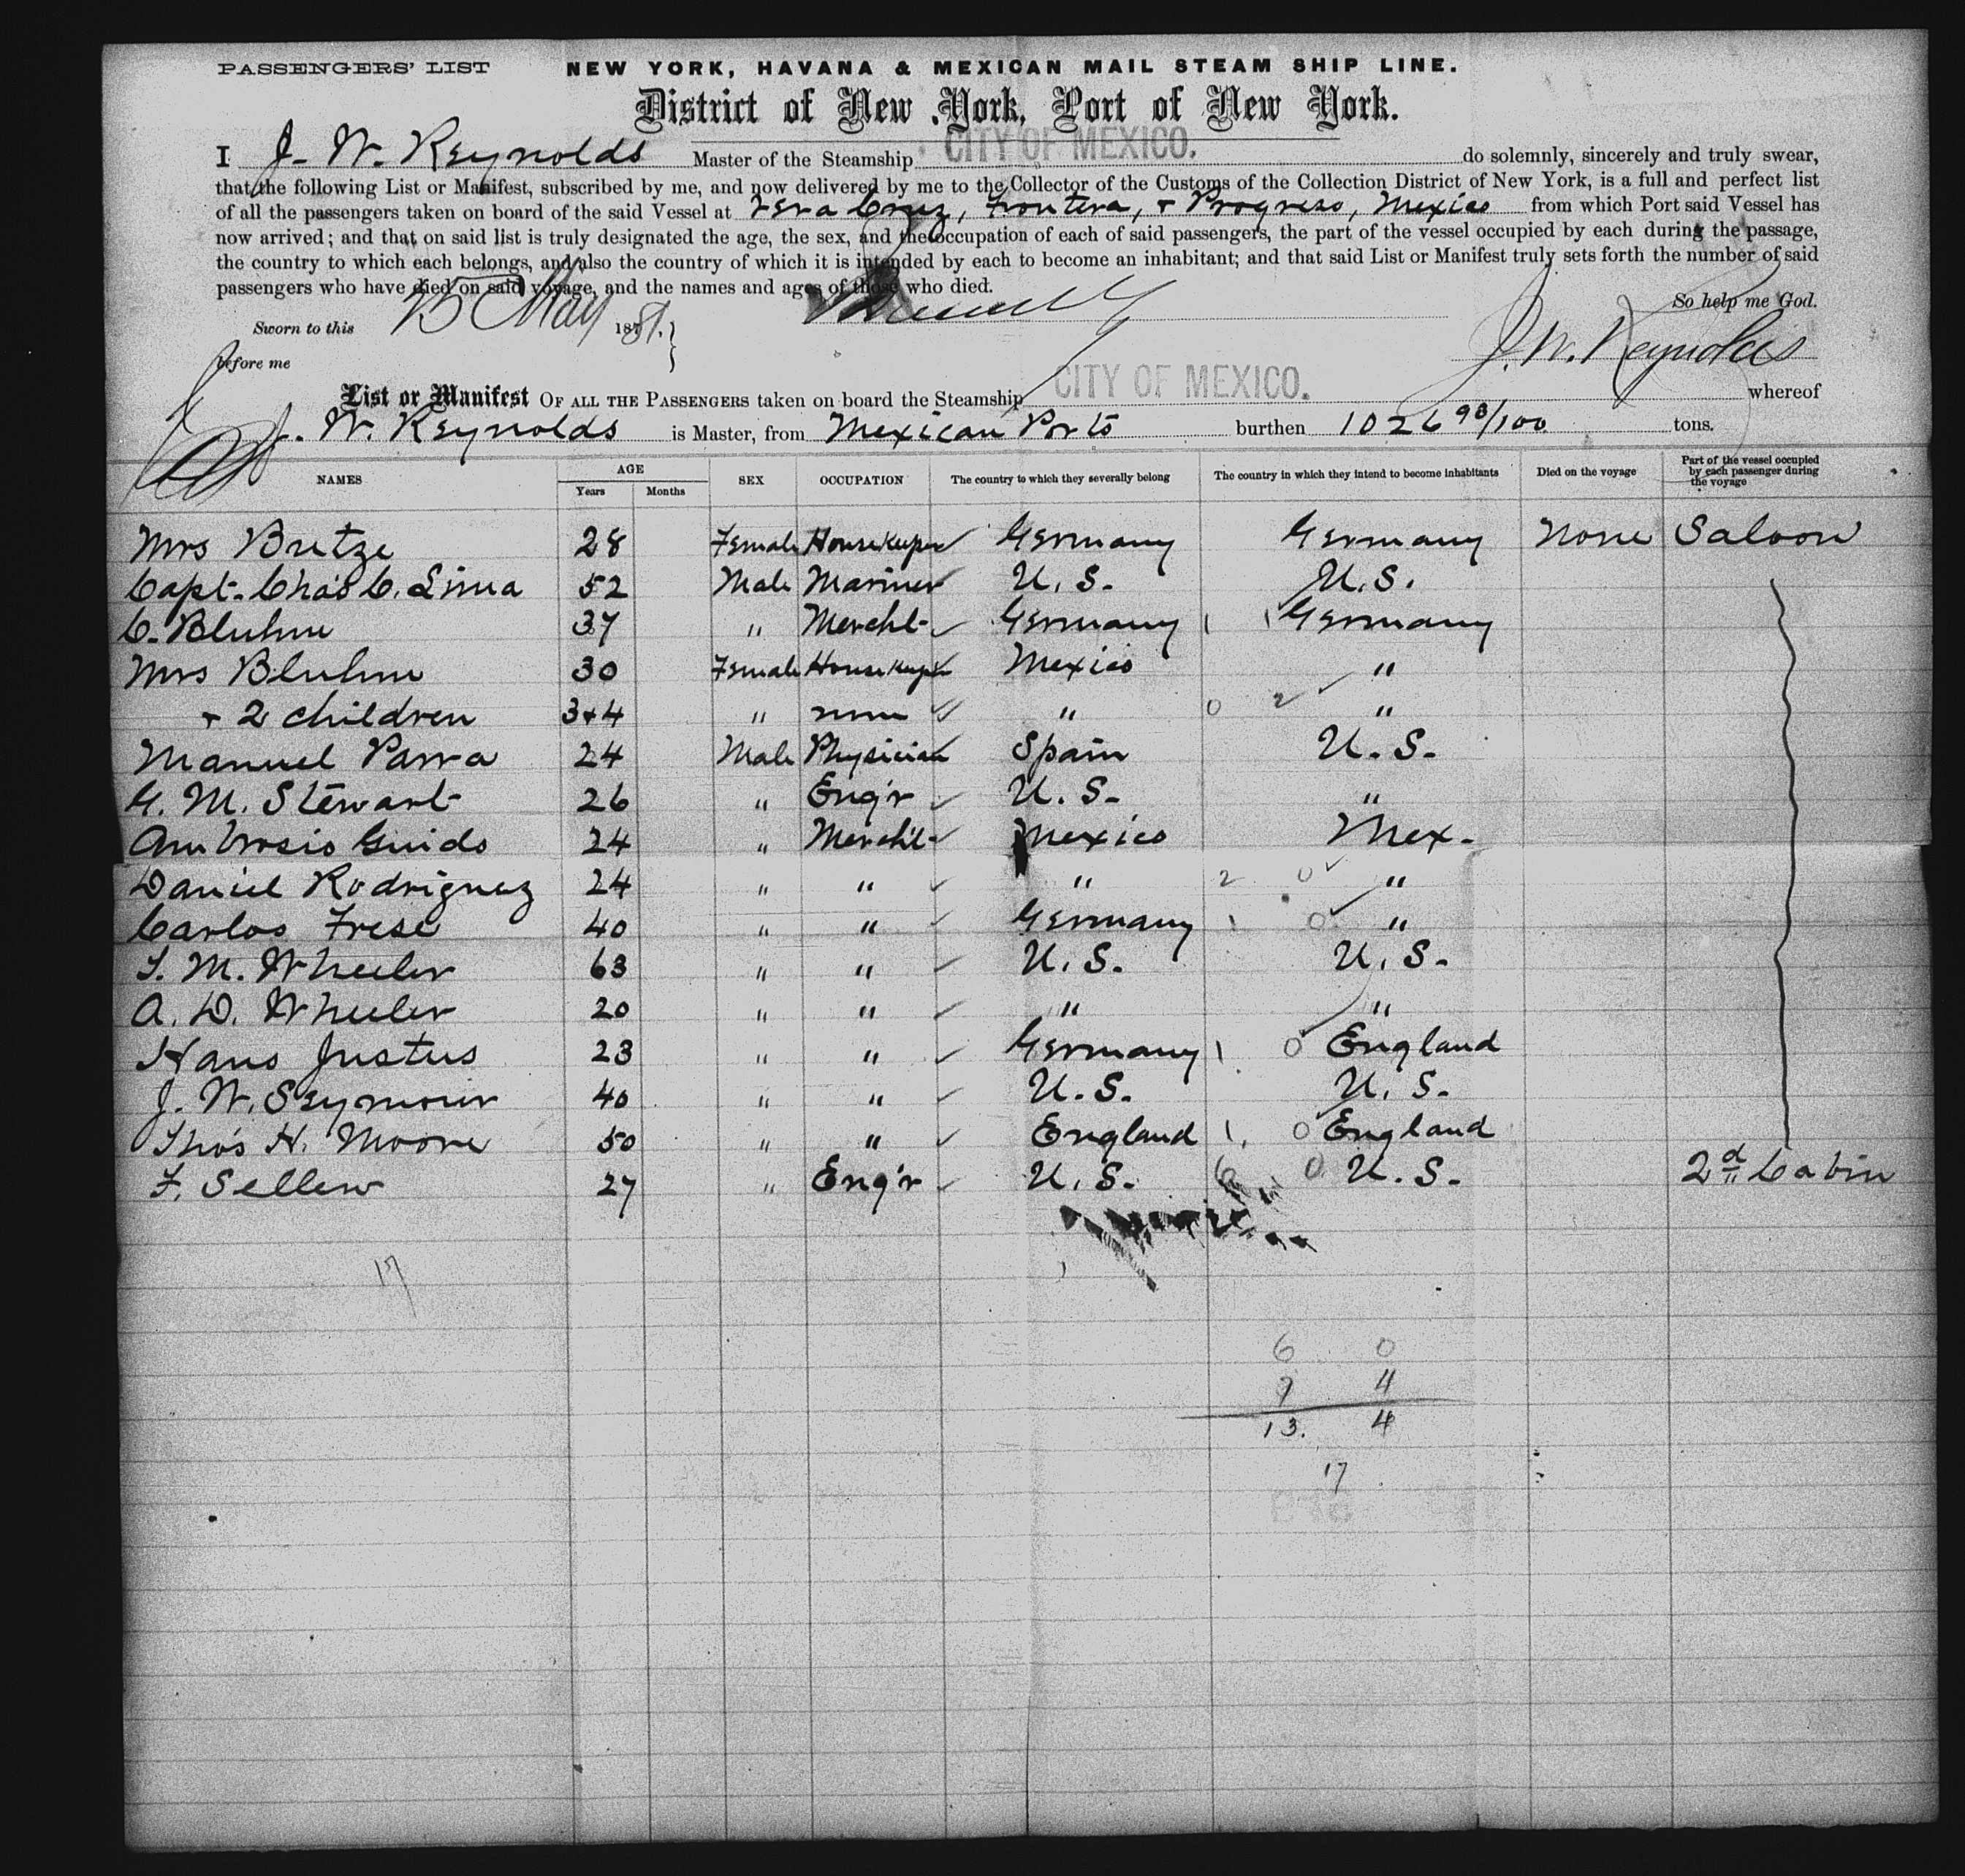 PASSENGERS' LIST NEW YORK, HAVANA & MEXICAN MAIL STEAM SHIP LINE.
District of New York, Port of New York.
I J. W. Reynolds Master of the Steamship CITY OF MEXICO. do solemnly, sincerely and truly swear,
that the following List or Manifest, subscribed by me, and now delivered by me to the Collector of the Customs of the Collection District of New York, is a full and perfect list
of all the passengers taken on board of the said Vessel at Vera Cruz, Frontera, & Progreso, Mexico from which Port said Vessel has
now arrived; and that on said list is truly designated the age, the sex, and the occupation of each of said passengers, the part of the vessel occupied by each during the passage,
the country to which each belongs, and also the country of which it is intended by each to become an inhabitant; and that said List or Manifest truly sets forth the number of said
passengers who have died on said voyage, and the names and ages of those who died.
So help me God.
Sworn to this 25 May 1881.
before me J. W. Reynolds
List or Manifest OF ALL THE PASSENGERS taken on board the Steamship CITY OF MEXICO. whereof
J. W. Reynolds is Master, from Mexican Ports burthen 1026 93/100 tons.
NAMES AGE Years Months SEX OCCUPATION The country to which they severally belong The country in which they intend to become inhabitants Died on the voyage Part of the vessel occupied by each passenger during the voyage
Mrs Bretze 28 Female Housekeeper Germany Germany None Saloon
Capt. Chas C. Sima 52 Male Mariner U.S. U.S.
C. Bluhm 37 " Mercht Germany 1 1 Germany
Mrs Bluhm 30 Female Housekeeper Mexico "
+ 2 children 3+4 " none " 0 2 "
Manuel Parra 24 Male Physician Spain U.S.
G. M. Stewart 26 " Eng'r U.S. "
Ambrosio Guido 24 " Mercht Mexico Mex.
Daniel Rodriguez 24 " " " 2 0 "
Carlos Frese 40 " " Germany 1 0 "
T. M. Wheeler 63 " " U.S. U.S.
A. D. Wheeler 20 " " " "
Hans Justus 23 " " Germany 1 0 England
J. W. Seymour 40 " " U.S. U.S.
Thos H. Moore 50 " " England 1. 0 England
F. Sellew 27 " Eng'r U.S. 6 0 U.S. 2d Cabin
17
6 0
7 4
13. 4
17